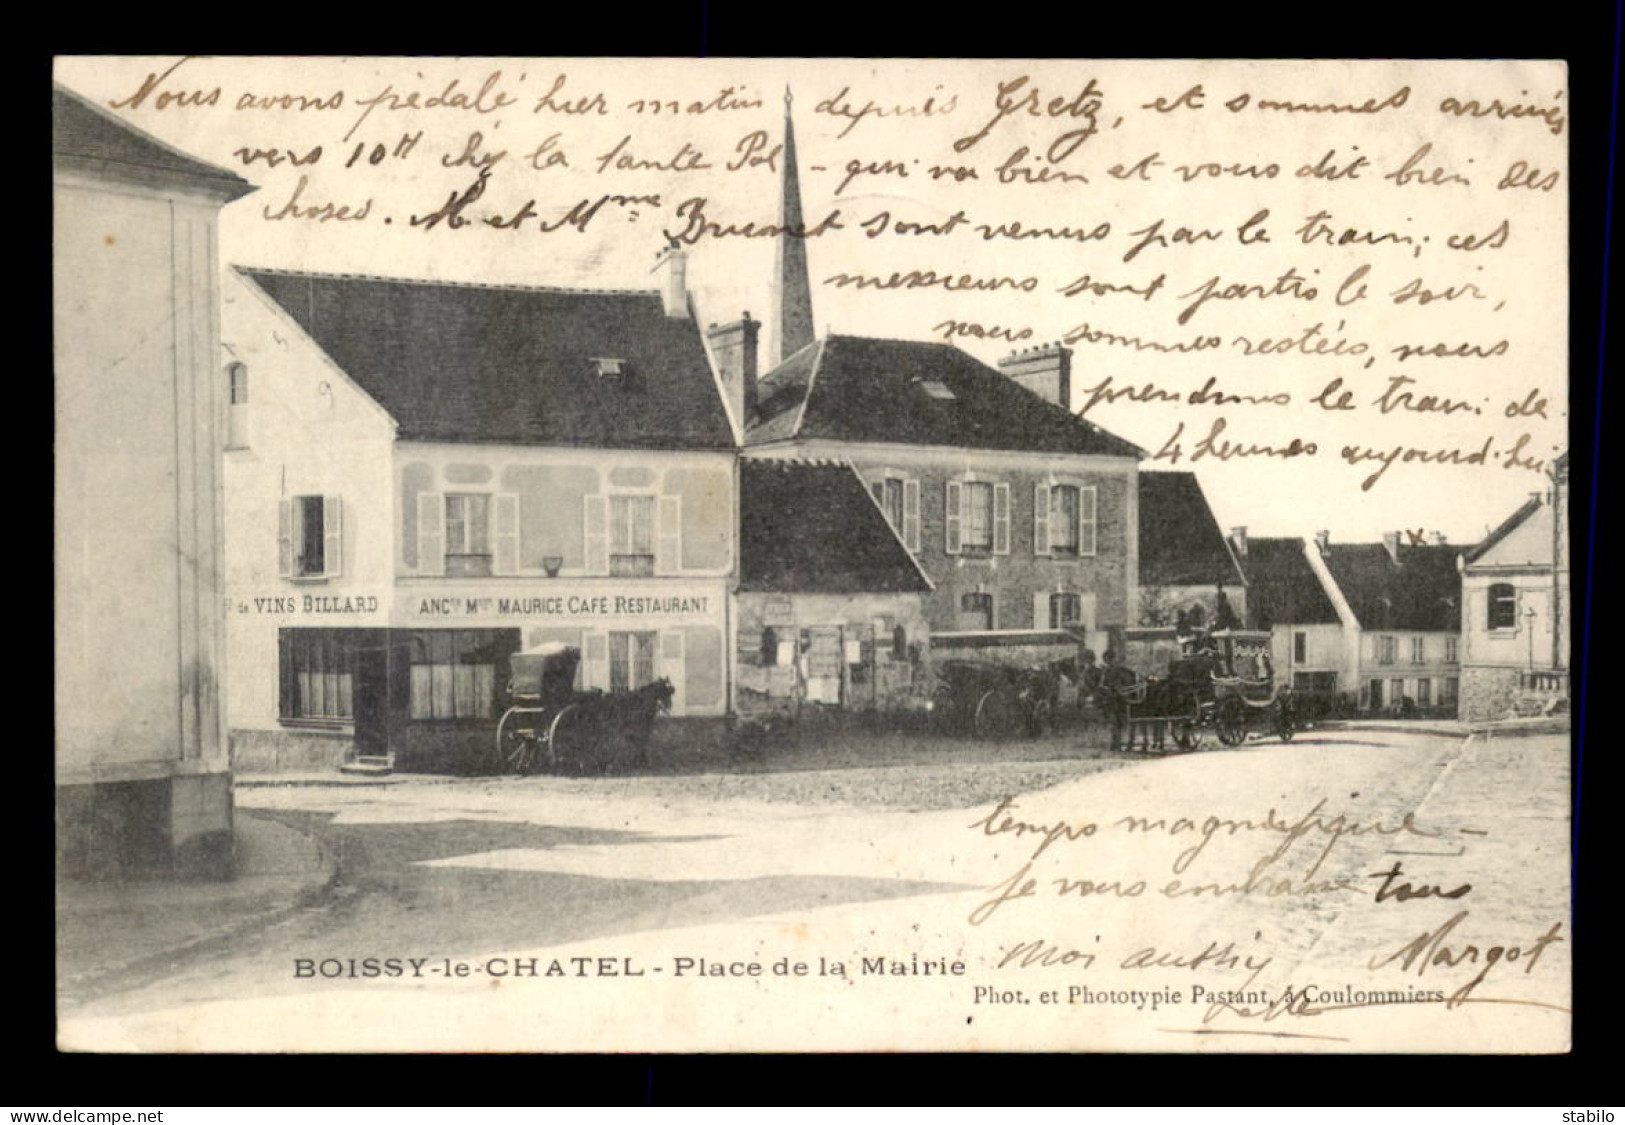 Nous avons pédalé hier matin depuis Gretz, et sommes arrivés
vers 10H chez la tante Pol - qui va bien et vous dit bien des
choses. M. et Mme Brunet sont venus par le train; ces
messieurs sont partis le soir,
nous sommes restées, nous
prendrons le train de
4 heures aujourd'hui
de VINS BILLARD
ANCne Mson MAURICE CAFÉ RESTAURANT
temps magnifique -
je vous embrasse tous
Margot
Moi aussi
BOISSY-le-CHATEL - Place de la Mairie
Phot. et Phototypie Pastant, à Coulommiers
www.delcampe.net
stabilo